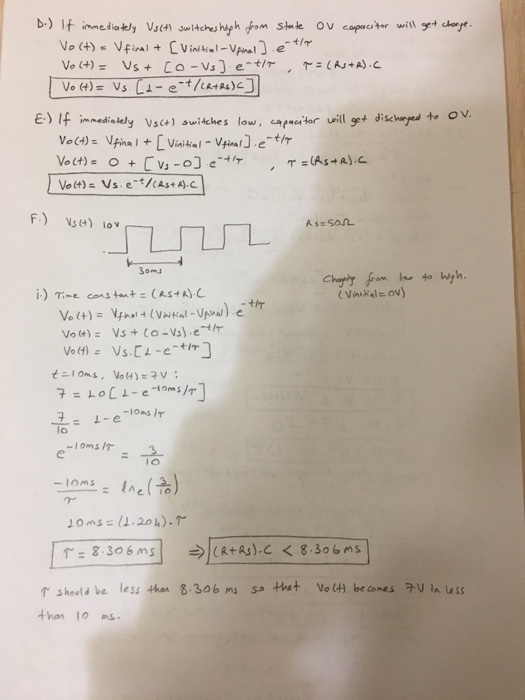 D.) If immediately Vs(t) switches high from state 0V capacitor will get charge.
Vo(t) = Vfinal + [Vinitial - Vfinal] . e^-t/τ
Vo(t) = Vs + [0 - Vs] e^-t/τ , τ = (Rs+R).C
Vo(t) = Vs [1 - e^-t/(R+Rs)C]
E.) If immediately Vs(t) switches low, capacitor will get discharged to 0V.
Vo(t) = Vfinal + [Vinitial - Vfinal] . e^-t/τ
Vo(t) = 0 + [Vs - 0] e^-t/τ , τ = (Rs+R).C
Vo(t) = Vs. e^-t/(Rs+R).C
F.) Vs(t) 10V Rs=50Ω
30ms
Charging from low to high.
(Vinitial = 0V)
i.) Time constant = (Rs+R).C
Vo(t) = Vfinal + (Vinitial - Vfinal) . e^-t/τ
Vo(t) = Vs + (0 - Vs). e^-t/τ
Vo(t) = Vs. [1 - e^-t/τ]
t = 10ms, Vo(t) = 7V :
7 = 10 [1 - e^-10ms/τ]
7/10 = 1 - e^-10ms/τ
e^-10ms/τ = 3/10
-10ms/τ = lne(3/10)
10ms = (1.204). τ
τ = 8.306 ms ⇒ (R+Rs).C < 8.306 ms
τ should be less than 8.306 ms so that Vo(t) becomes 7V in less
than 10 ms.